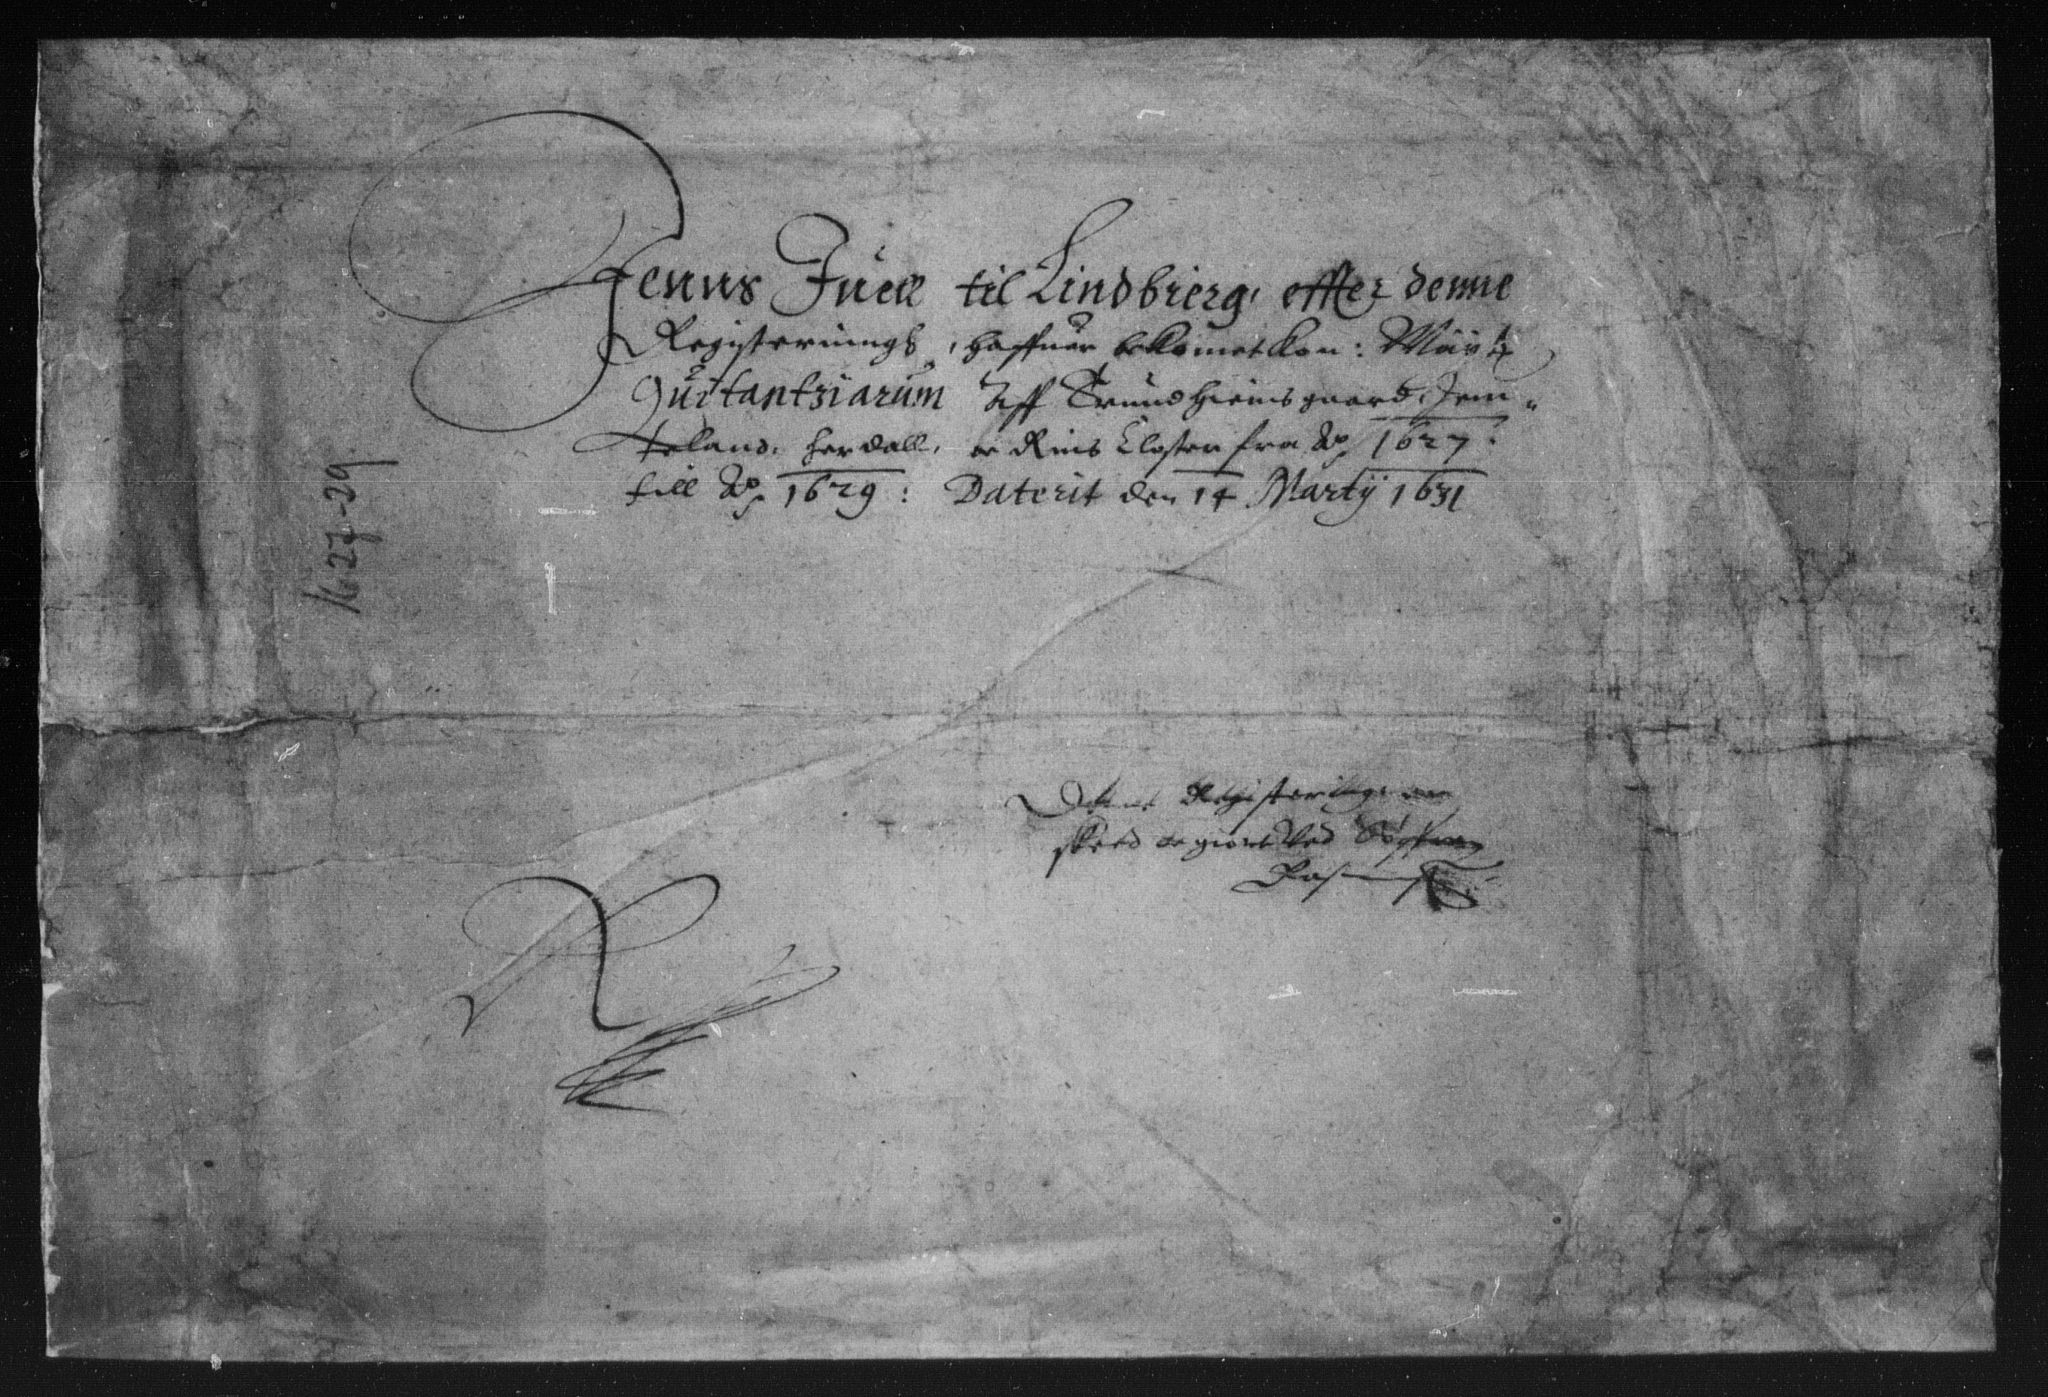 Jenns Juell til Lindbierg, effter denne
Registerings, haffuer bekomet kon: Maÿtz
Quitantziarum Aff Trundhiems gaard, Jem-
teland, herdall, oc Rins Closter fra Ao 1627:
till Ao 1629: Daterit den 14 Martij 1631
1627-29
Denne Registering er
skeed oc giort ved Søfren